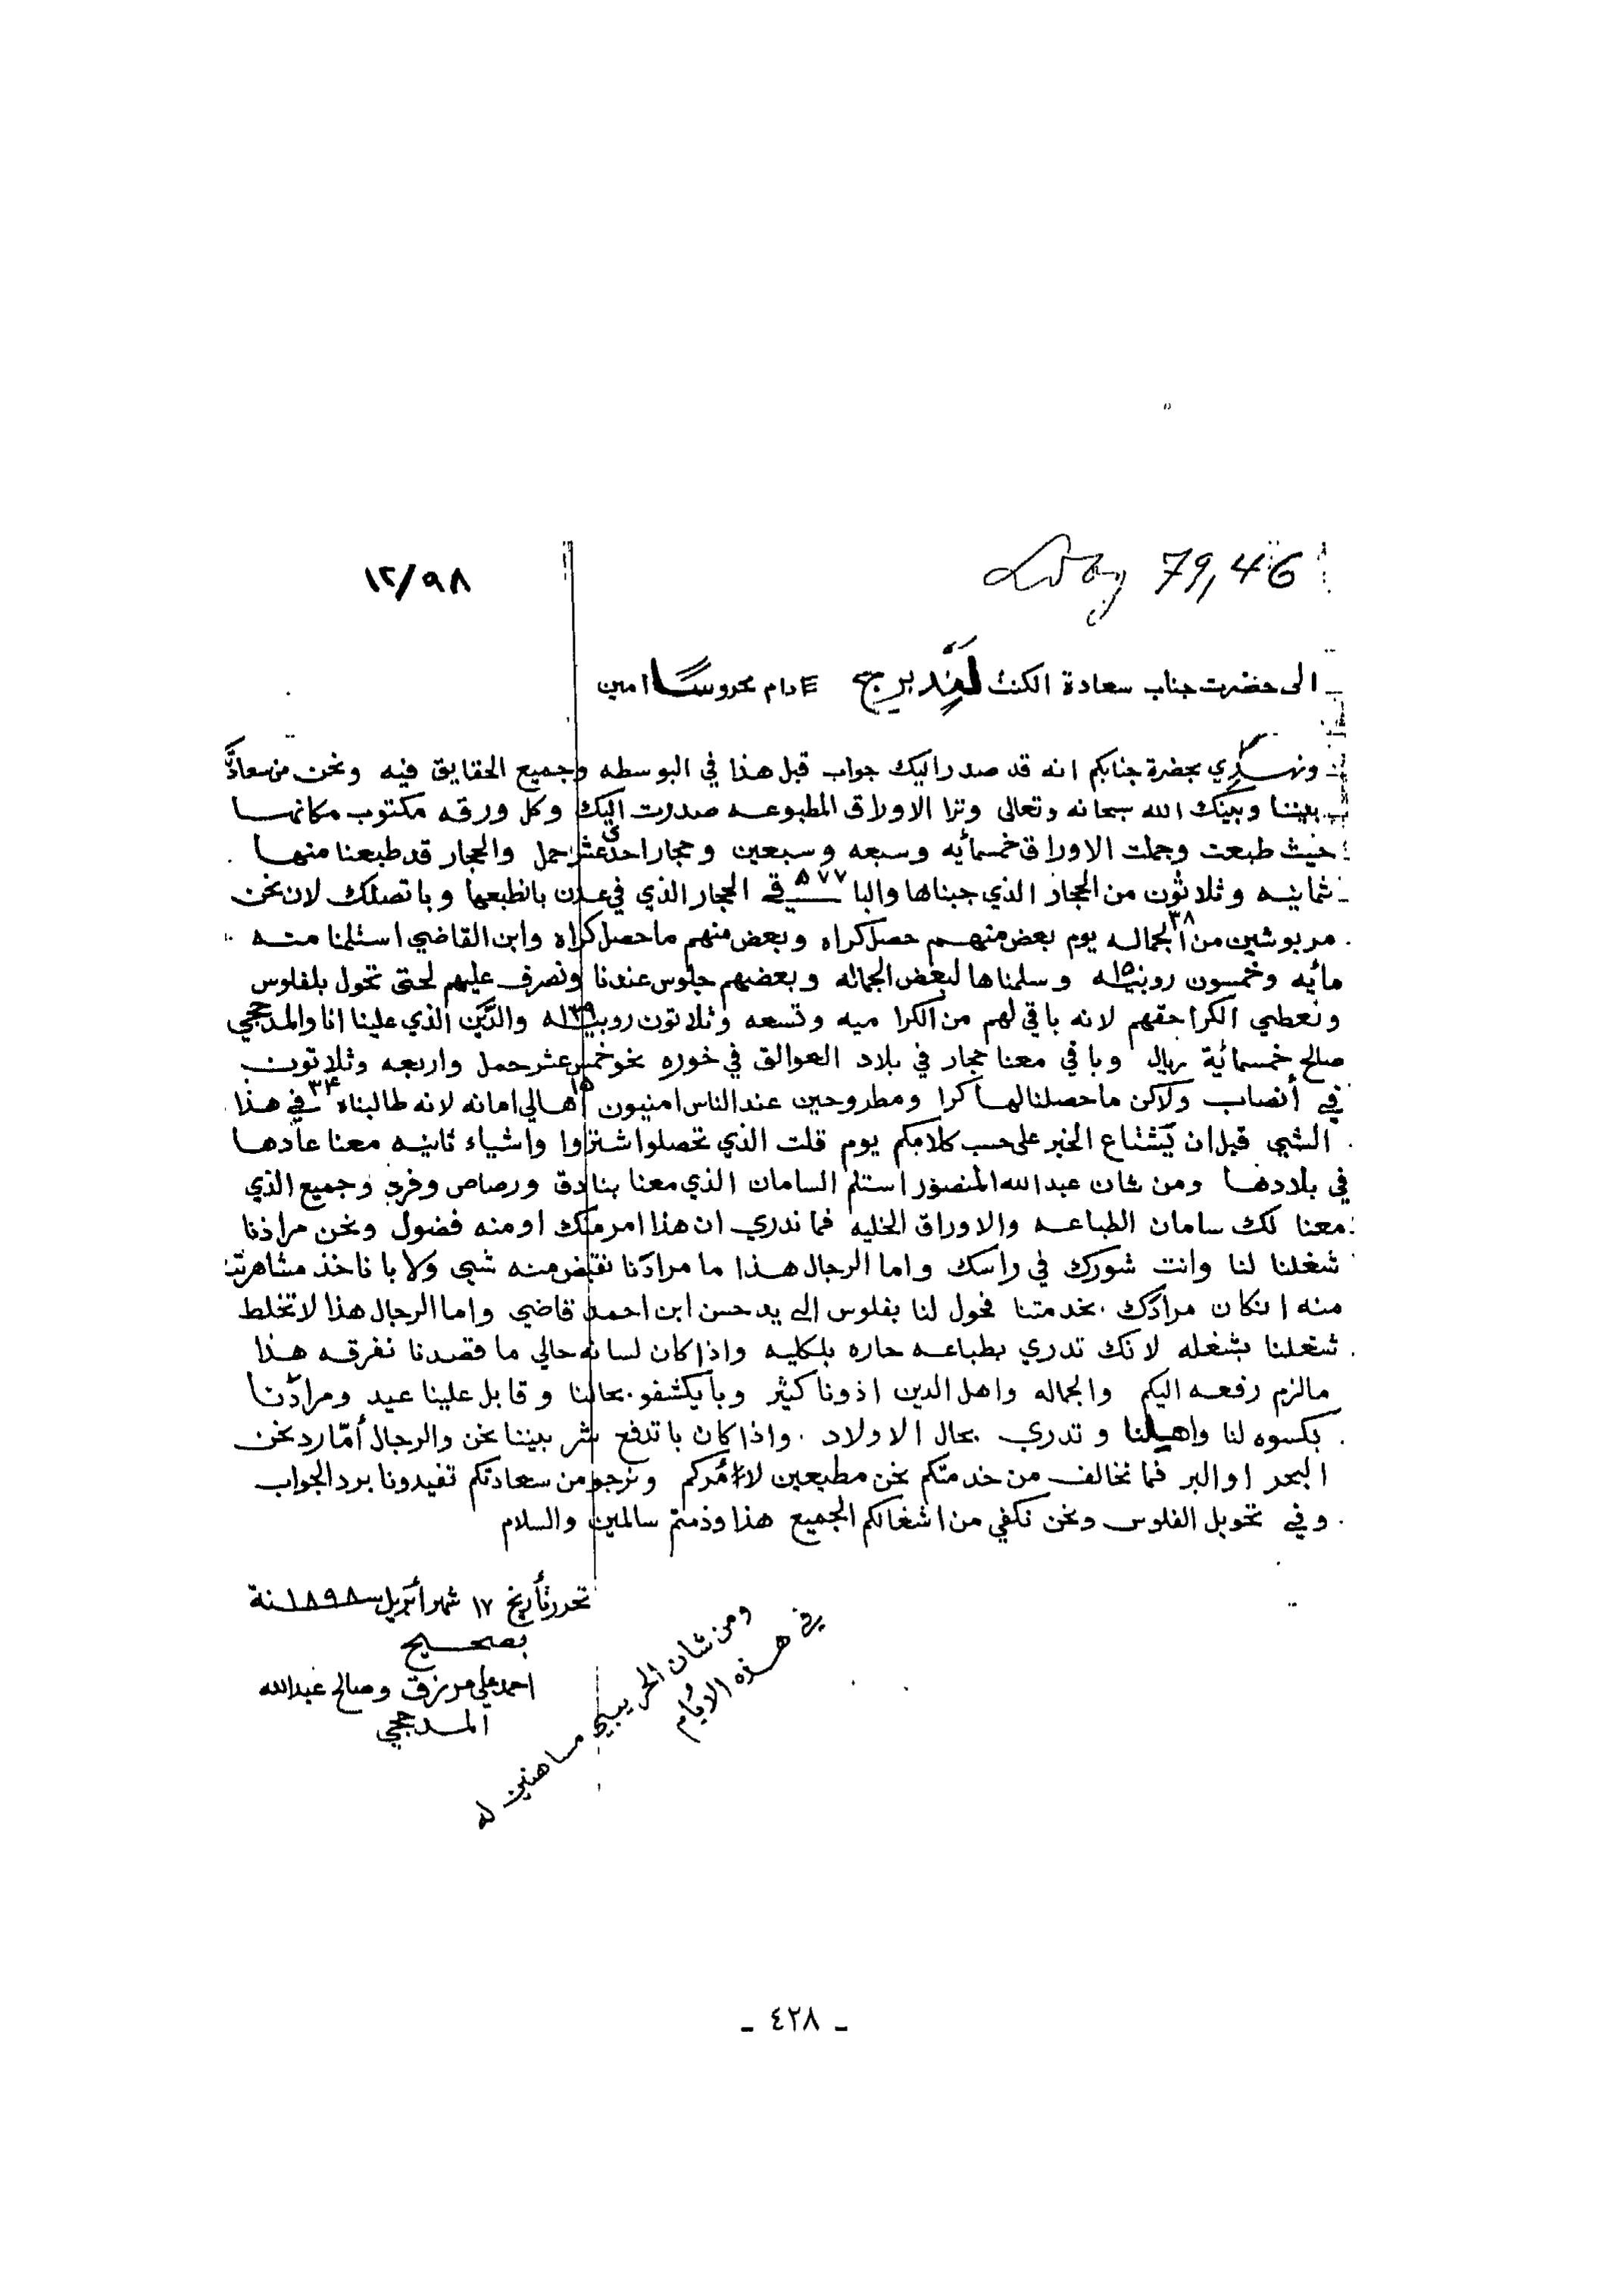 79,46
١٢/٩٨
الى حضرت جناب سعادة الكنت لندبرج دام محروساً امين
بحضرة جنابكم انه قد صدر اليك جواب قبل هذا في البوسطه وجميع الحقايق فيه ونحن من
بيننا وبينك الله سبحانه وتعالى وترا الاوراق المطبوعه صدرت اليك وكل ورقه مكتوب مكانها
حيث طبعت وجملت الاوراق خمسمائه وسبعه وسبعين وحجار احدى عشر حمل والحجار قد طبعنا منها
ثمانيه وثلاثون من الحجار الذي جبناها والباقي ٥٧٧ الحجار الذي في عدن بانطبعها وباتصلك لان نحن
مربوشين من الجماله ٣٨ يوم بعض منهم حصل كراه وبعض منهم ما حصل كراه وابن القاضي استلمنا منه
مائه وخمسون روبيه ١٥٠ وسلمناها لبعض الجماله وبعضهم جلوس عندنا ونصرف عليهم لحتى تحول بلفلوس
ونعطي الكرا حقهم لانه باقي لهم من الكرا ميه وتسعه وثلاثون روبيه ١٣٩ والدَّين الذي علينا انا والمدحجي
صالح خمسمائة ريال وباقي معنا حجار في بلاد العوالق في خوره نحو خمس عشر حمل واربعه وثلاثون
في أنصاب ولاكن ما حصلنا لها كرا ومطروحين عند الناس امنيون ١٥ اهالي امانه لانه طالبناه ٣٤ في هذا
الشي قبل ان يشتاع الخبر على حسب كلامكم يوم قلت الذي تحصلوا اشتروا واشياء ثانيه معنا عادها
في بلادها ومن شان عبدالله المنصور استلم السامان الذي معنا بنادق ورصاص وفرد وجميع الذي
معنا لك سامان الطباعه والاوراق الخليه فما ندري ان هذا امر منك او منه فضول ونحن مرادنا
شغلنا لنا وانت شورك في راسك واما الرجال هذا ما مرادنا نقبض منه شي ولا با ناخذ مشاهرتنا
منه انكان مرادك بخدمتنا فحول لنا بفلوس الى يد حسن ابن احمد قاضي واما الرجال هذا لا تخلط
شغلنا بشغله لانك تدري بطباعه حاره بلكليه واذا كان لسانه حالي ما قصدنا نفرقه هذا
مالزم رفعه اليكم والجماله واهل الدين اذونا كثير وبا يكشفو بحالنا وقابل علينا عيد ومرادنا
بكسوه لنا واهيلنا وتدري بحال الاولاد واذا كان با تدفع شر بيننا نحن والرجال أمّا رد نحن
البحر او البر فما نخالف من خدمتكم نحن مطيعين لامركم ونرجو من سعادتكم تفيدونا برد الجواب
وفي تحويل الفلوس ونحن نكفي من اشغالكم الجميع هذا وذمتم سالمين والسلام
تحرر تأريخ ١٧ شهر أبريل سنة ١٨٩٨
بصحيح
احمد علي مرزق وصالح عبدالله
المدحجي
ومن شان الحريبي مساهنين له
في هذه الايام
ـ ٤٢٨ ـ